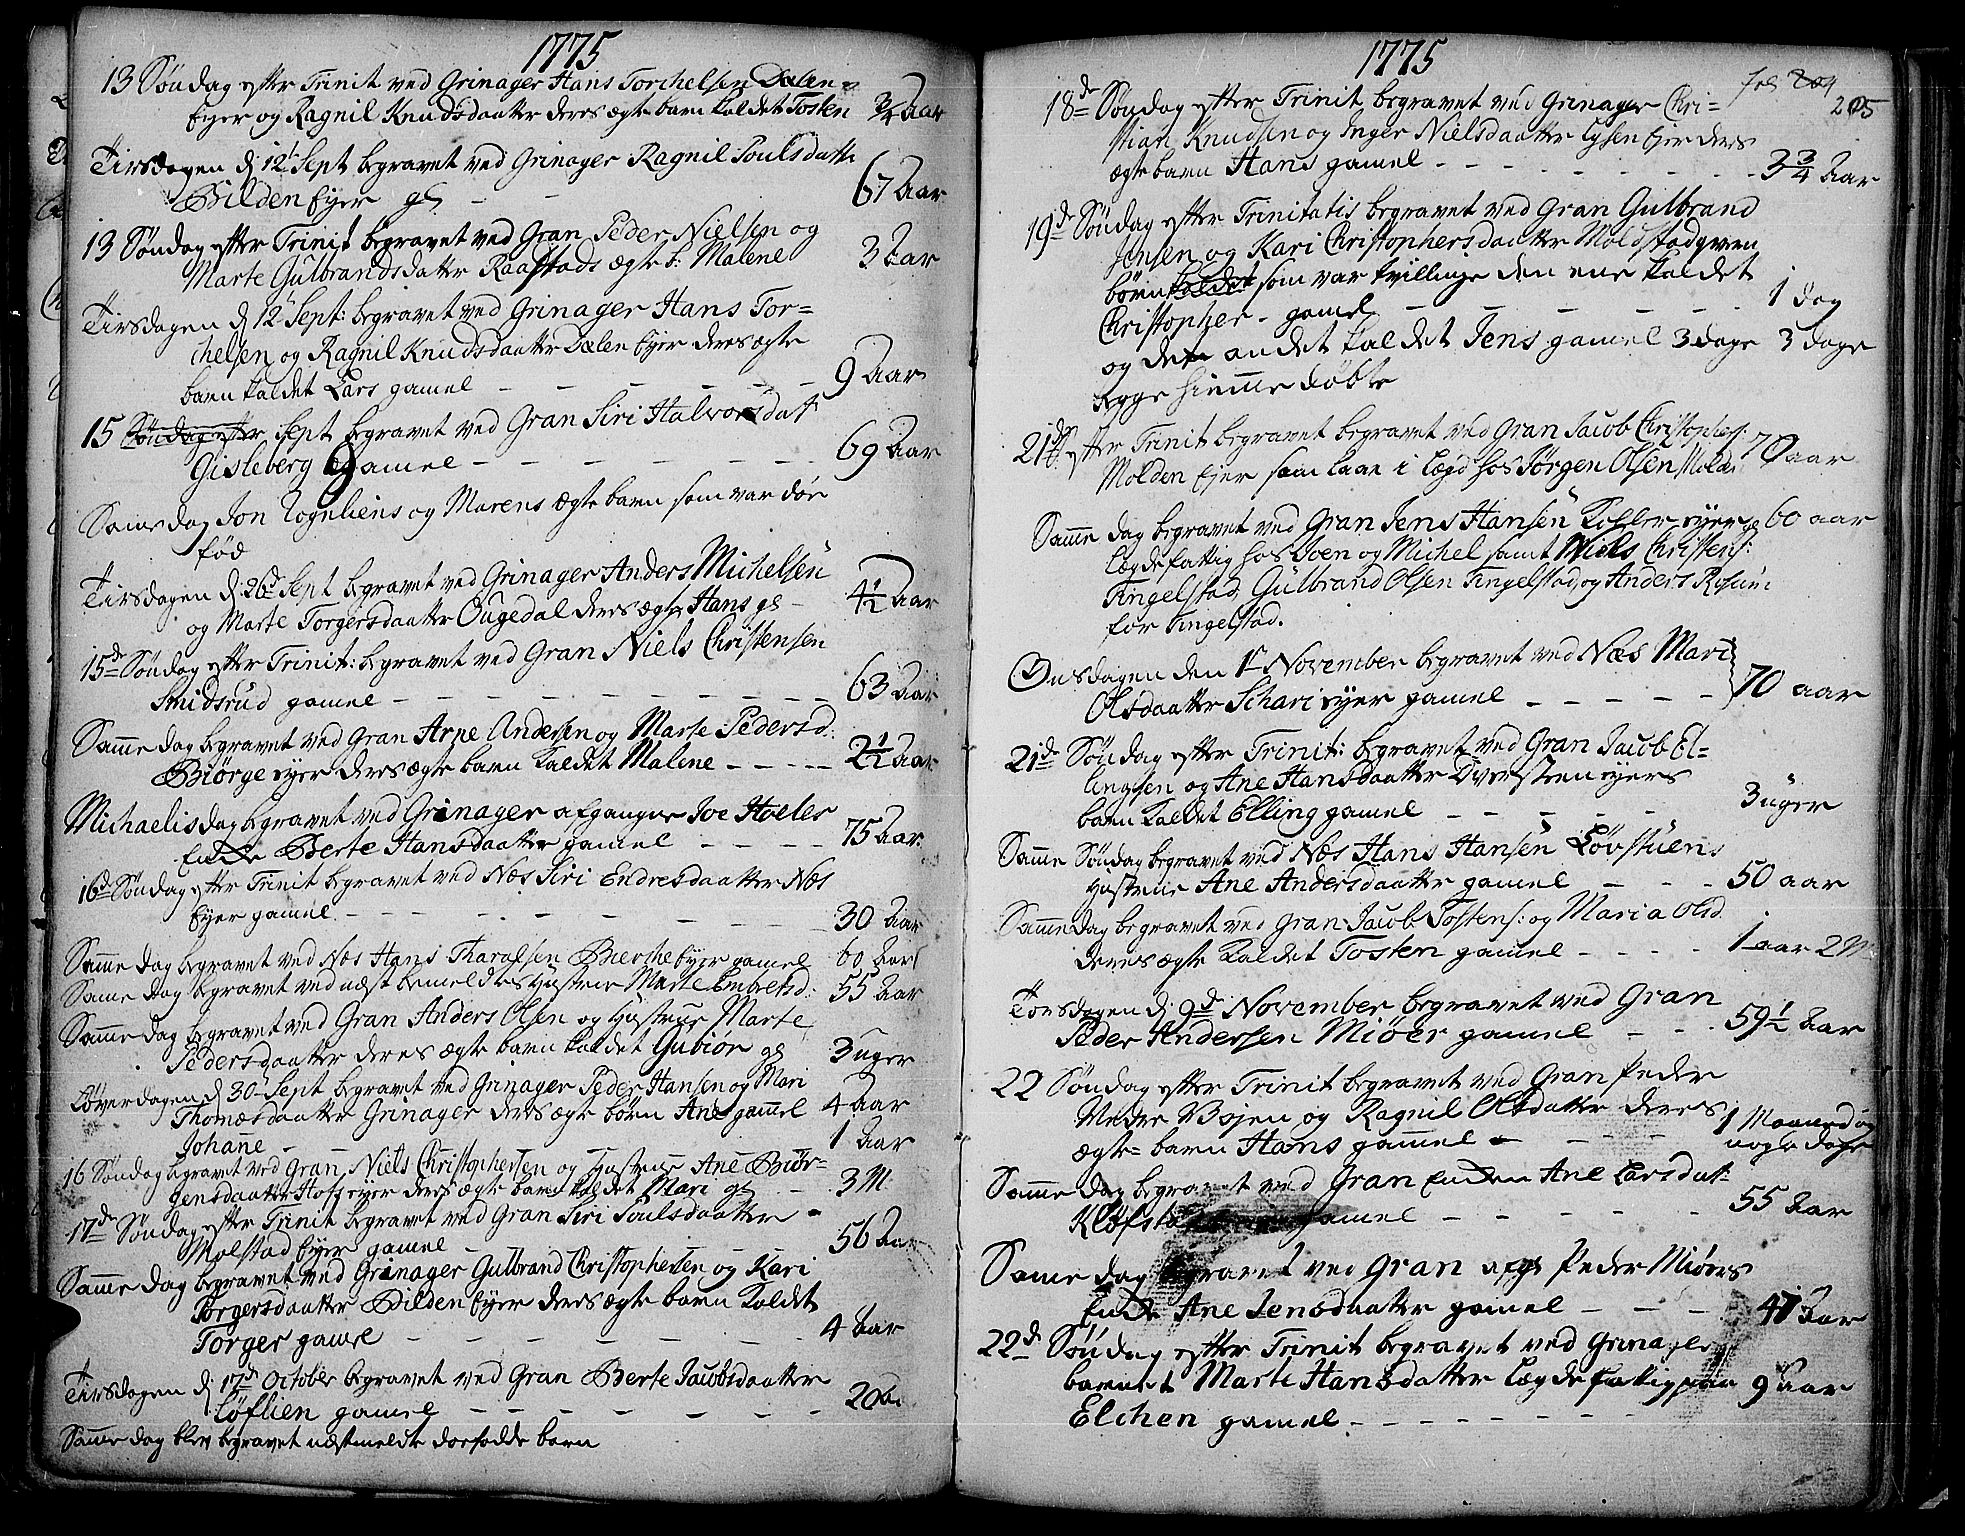 1775
13 Søndag efter Trinit ved Grinager Hans Torchelsen Dælen
Eyer og Ragnil Knudsdaatter deres ægte barn kaldet Tosten 3/4 Aar
Tirsdagen d: 12t Sept begravet ved Grinager Ragnil Poulsdatt
Bilden Eyer gl - - 67 Aar
13 Søndag efter Trinit begravet ved Gran Peder Nielsen og
Marte Gulbrandsdatter Raastads ægte b: Malene 3 Aar
Tirsdagen d: 12t Sept: begravet ved Grinager Hans Tor=
chelsen og Ragnil Knudsdaatter Dælen Eyer deres ægte
barn kaldet Lars gamel - - - - - - 9 Aar
15 Søndag efter Sept begravet ved Gran Siri Halvorsdatt
Gisleberg gamel - - - - - - - 69 Aar
Same dag Jon Togneliens og Marens ægte barn som var døe
fød
Tirsdagen d: 26d Sept begravet ved Grinager Anders Michelsen
og Marte Torgersdaatter Ougedal deres ægte Hans gl - 4 1/2 Aar
15de Søndag efter Trinit: begravet ved Gran Niels Christensen
Smidsrud gamel - - - - - - - - 63 Aar
Samme dag begravet ved Gran Arne Andersen og Marte Pedersd.
Biørge eyer deres ægte barn kaldet Malene - - - - - 2 1/2 Aar
Michaelis dag begravet ved Grinager afgangne Joe Hvales
Encke Berte Hansdaatter gamel - - - - 75 Aar
16d Søndag efter Trinit begravet ved Næs Siri Endresdaatter Næs
Eyer gamel - - - - - - - - 30 Aar
Samme dag begravet ved Næs Hans Tharalsen Bierche eyer gamel 60 Aar
Same dag begravet ved næst bemeldtes Hustrue Marte Embretsd: 55 Aar
Samme dag begravet ved Gran Anders Olsen og Hustrue Marte
Pedersdaatter deres ægte barn kaldet Gubiør gl 3 uger
Løverdagen d 30t Sept begravet ved Grinager Peder Hansen og Mari
Thomæsdaatter Grinager deres ægte børn Ane gamel 4 Aar
Johane - - - 1 Aar
16 Søndag begravet ved Gran Niels Christophersen og Hustrue Ane Biør=
gensdaatter Hoff eyer deres ægte barn kaldet Mari gl - 3 M
17de Søndag efter Trinit begravet ved Gran Siri Poulsdaatter -
Molstad Eyer gamel - - - - - 56 Aar
Samme dag begravet ved Grinager Gulbrand Christophersen og Kari
Torgersdaatter Bilden Eyer deres ægte barn kaldet
Torger gamel - - - - - - 4 Aar
Tirsdagen d: 17de October begravet ved Gran Berte Jacobsdaatter
Løflien gamel - - - - - - - 20 Aar
Samme dag blev begravet næstmeldte dødfødde barn
1775
fol 204
205
18de Søndag efter Trinit begravet ved Grinager Chri=
stian Knudsen og Inger Nielsdaatter Lysen Eyer deres
ægte barn Hans gamel - - - - - - - - 3 3/4 Aar
19de Søndag efter Trinitatis begravet ved Gran Gulbrand
Jensen og Kari Christophersdaatter Moldstadqvern
børn kaldet som var tvillinge den ene kaldet
Christopher - gamel - - - - - - 1 dag
og den andet kaldet Jens gamel 3 dage 3 dage
begge hiemme døbte
21de S: efter Trinit begravet begravet ved Gran Jacob Christophes:
Molden Eyer som laae i Lægd hos Jørgen Olsen Molden 70 aar
Samme dag begravet ved Gran Jens Hansen Kohler eyer gl 60 aar
Lægdefattig hos Joen og Michel samt Niels Christens:
Tingelstad, Gulbrand Olsen Tingelstad, og Anders Rosum
for Tingelstad.
Onsdagen den 1t November begravet ved Næs Mari
Olsdaatter Schari eyer gamel - - - - - 70 aar
21de Søndag efter Trinit: begravet ved Gran Jacob El=
lingsen og Ane Hansdaatter Dversteen eyers
barn kaldet Elling gamel - - - - - 3 uger
Samme Søndag begravet ved Næs Hans Hansen Løvstuens
Hustrue Ane Andersdaatter gamel - - - 50 aar
Samme dag begravet ved Gran Jacob Tostens: og Maria Olsd
deres ægte kaldet Tosten gamel - - - - 1 aar 2 M
Torsdagen d: 9d November begravet ved Gran
Peder Andersen Miøer gamel - - - 59 1/2 Aar
22 Søndag efter Trinit begravet ved Gran Peder
Medre Vojen og Ragnil Olsdatter deres
ægte= barn Hans gamel - - - - 1 Maaned og
nogle dage
Samme dag begravet ved Gran Encken Ane Larsdat:
Kløfsta gamel - - - - - 55 Aar
Same dag begravet ved Gran afg: Peder Miøers
Encke Ane Jensdaatter gamel - - - - 47 Aar
22d Søndag efter Trinit begravet ved Grinager
barnet Marte Hansdatter Lægdefattig paa 9 Aar
Elchen gamel - - - - - - - -